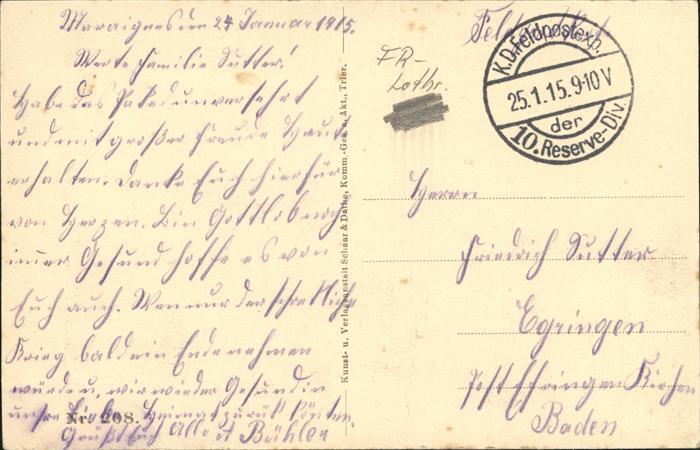 Maraignes den 24 Januar 1915.
Werte Familie Sutter!
Habe das Paked unversehrt
und mit großer Freude Heute
erhalten. Danke Euch hierfür
von Herzen. Bin Gottlob noch
immer Gesund hoffe es von
Euch auch. Wen nur der schreckliche
Krieg bald ein Ende nehmen
würde u. wir wieder Gesund in
unsre Heimat zurük könten
Grüßt Euch Alle A Bühler
Nr. 208.
Kunst- u. Verlagsanstalt Schaar & Dathe, Komm.-Ges. a. Akt., Trier.
Feldpost
FR-
Lothr.
K.D.Feldpostexp.
25.1.15.9-10 V
der
10.Reserve-Div.
Herrn
Friedrich Sutter
Egringen
Post Efringen Kirchen
Baden